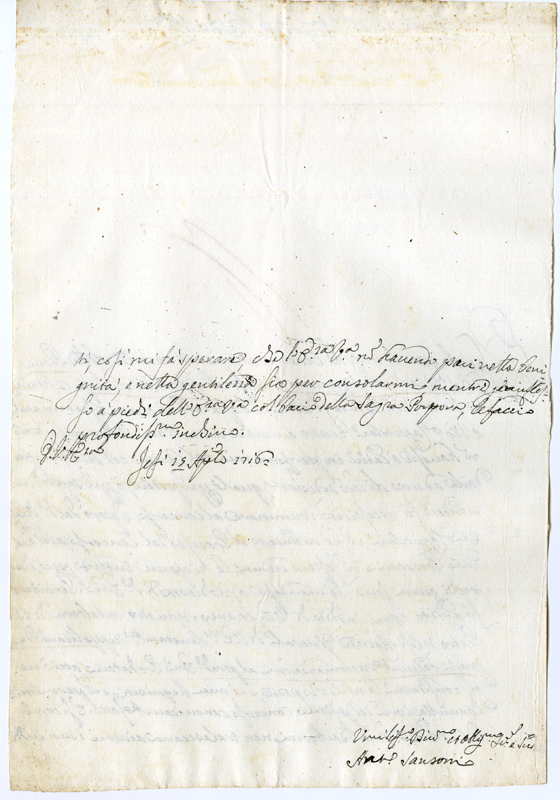 ti, così mi fà sperare che l'E.ra V.ra nõ havendo pari nella beni
gnità, e nella gentilezza sia per consolarmi mentre genufles
so a piedi dell' col bacio della Sagra Porpora le faccio
profondiss.mo inchino.
Jesi 15 Ag.to 1716
Umiliss.o Div.o et Obblig.mo
Ant.o Sansoni